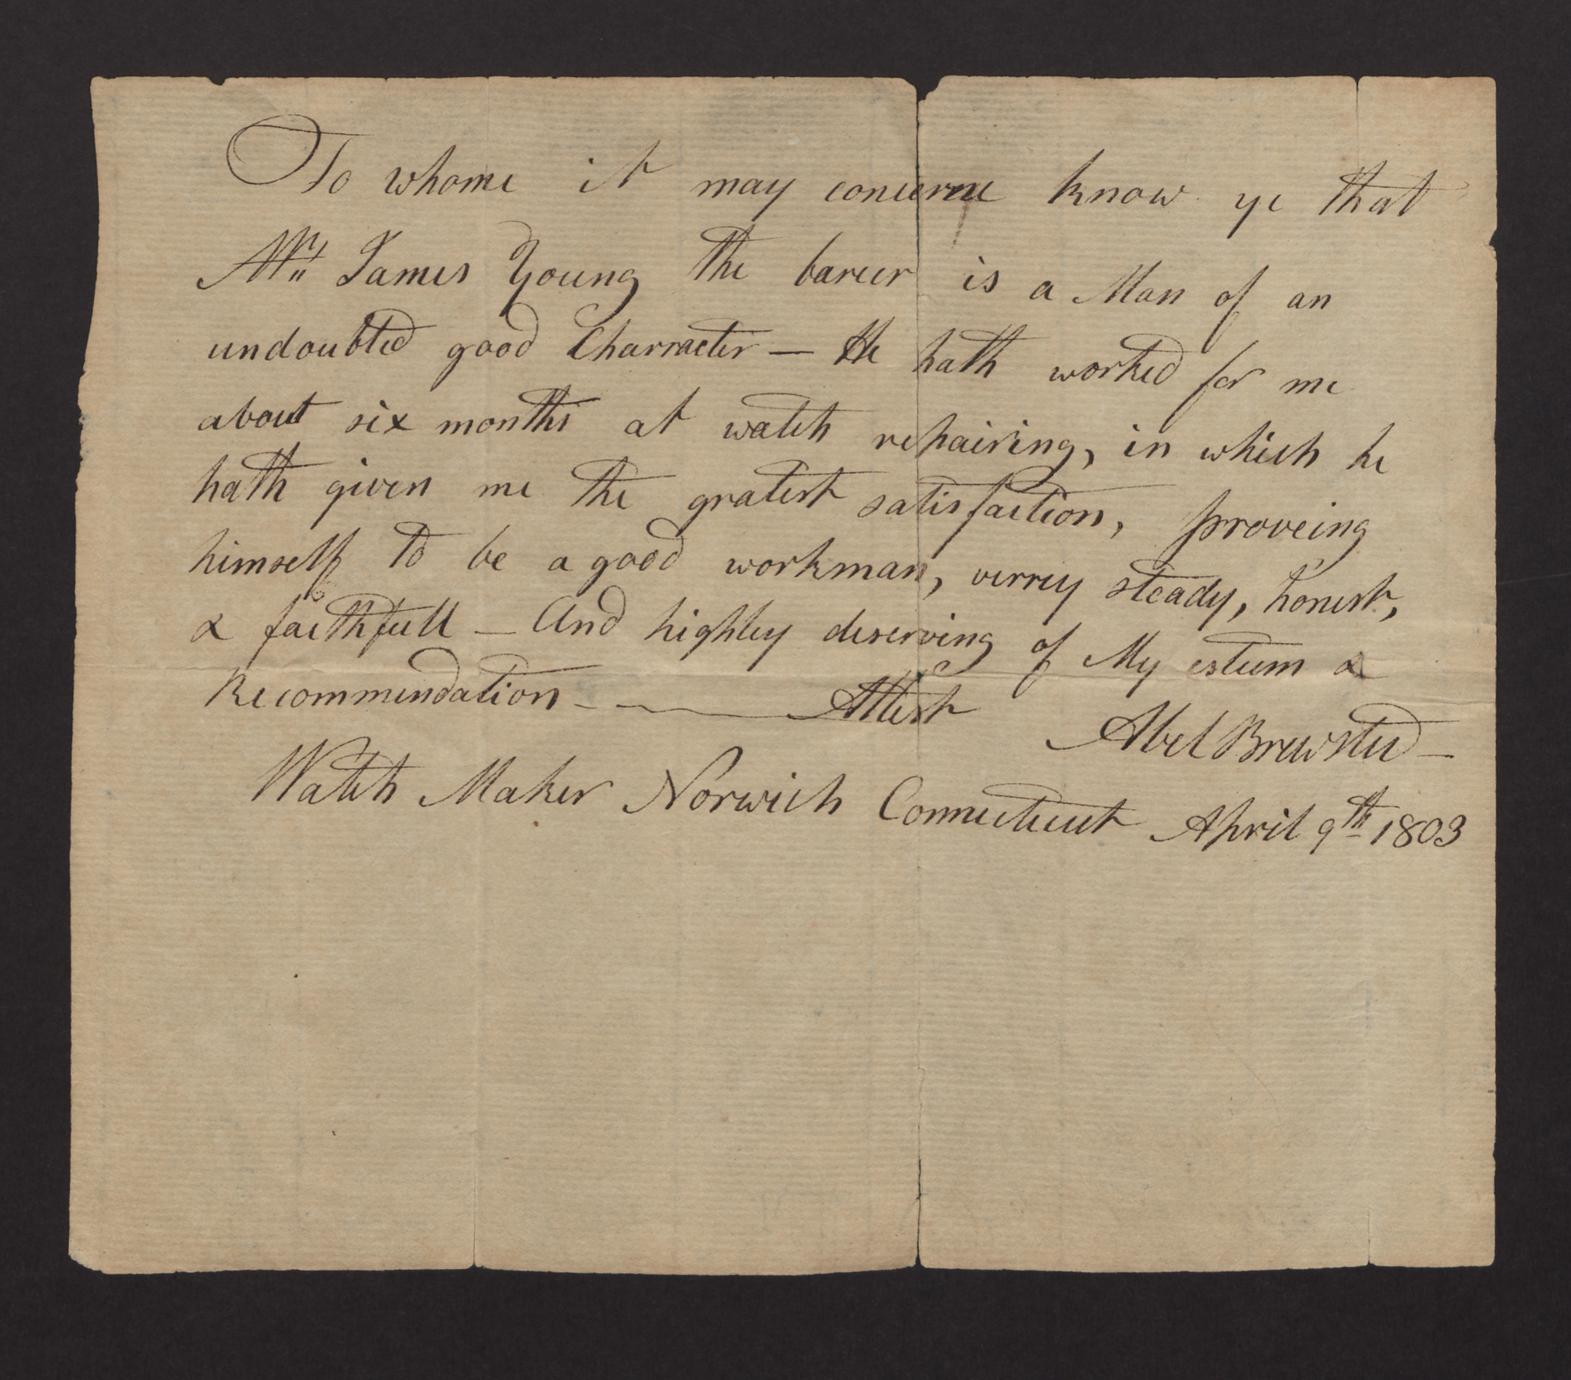 To whome it may concerne know ye that
Mr. James Young the bareer is a Man of an
undoubted good Charracter — He hath worked for me
about six months at watch repairing, in which he
hath given me the gratest satisfaction, proveing
himself to be a good workman, verrey steady, honest,
& faithfull — And highley deserving of My esteem &
Recommendation — Attest Abel Brewsted —
Watch Maker Norwich Connecticut April 9th 1803